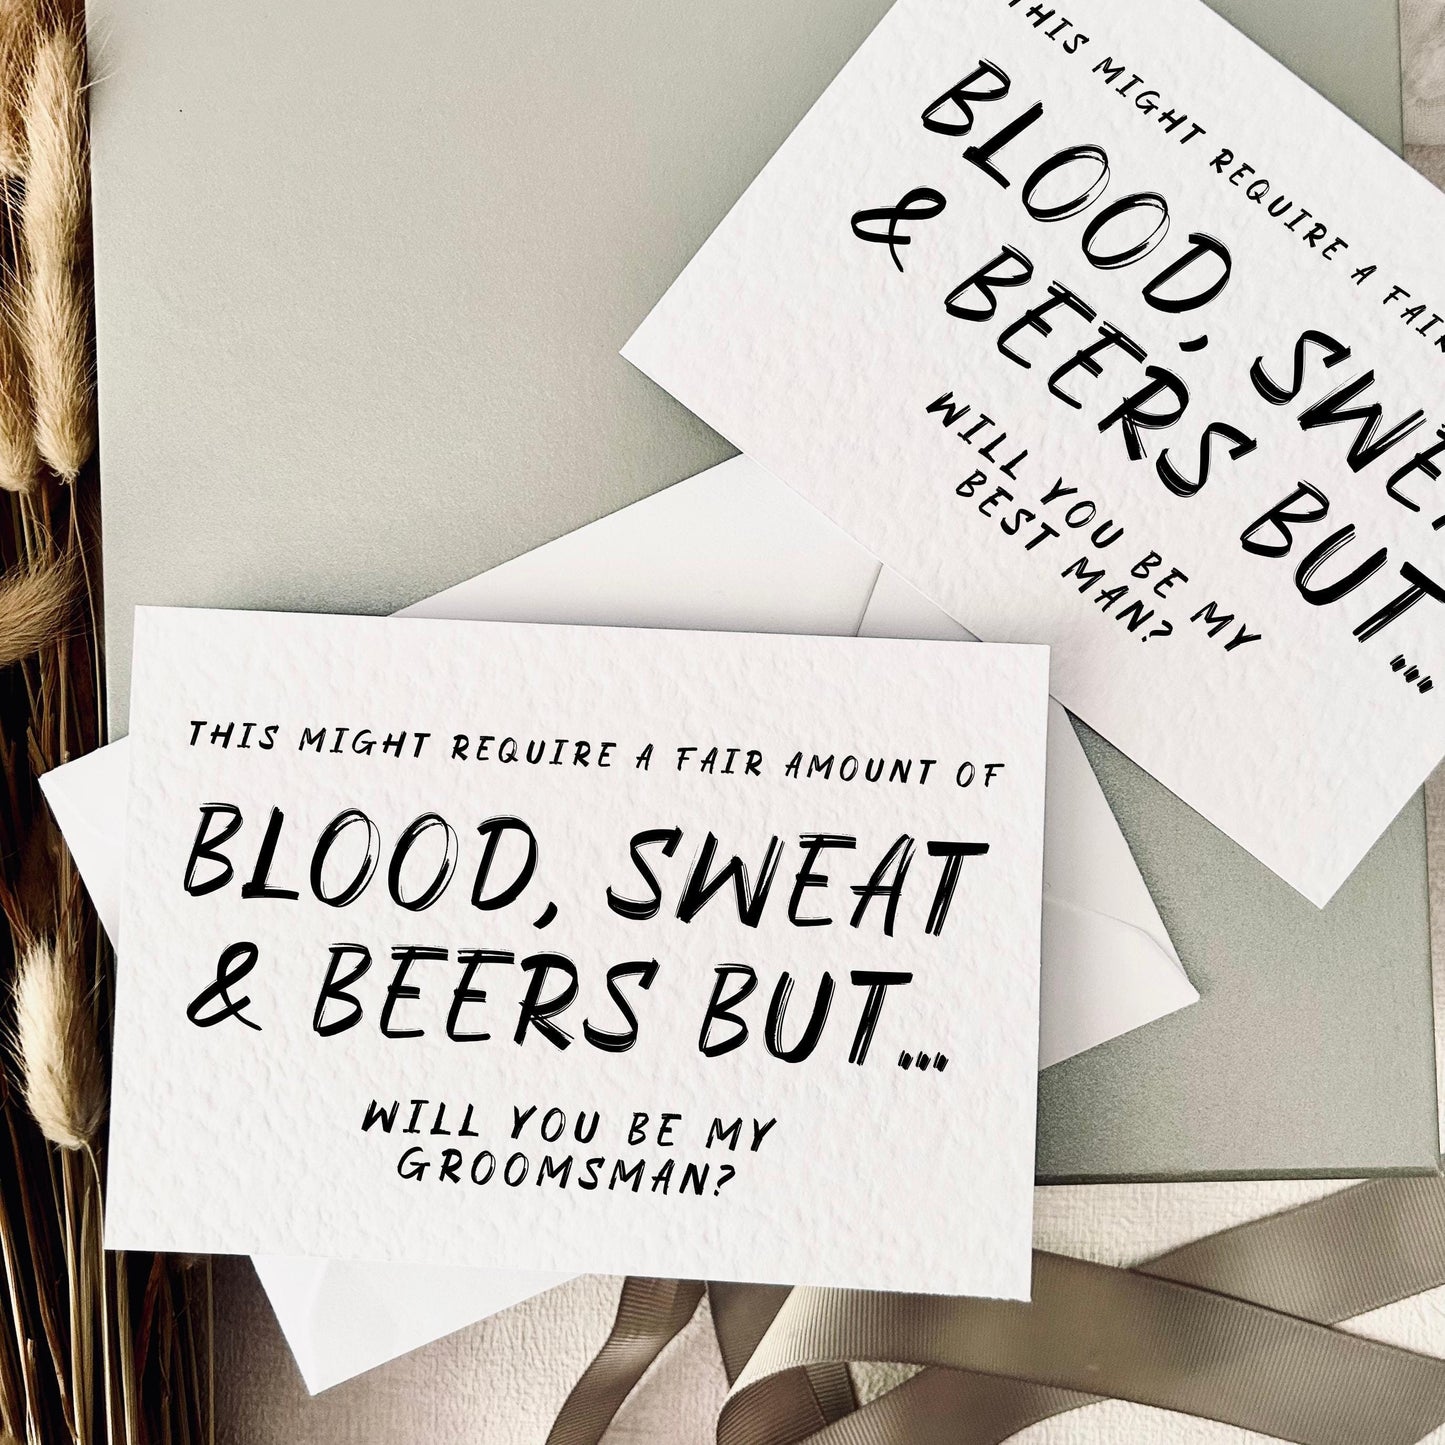 THIS MIGHT REQUIRE A FAIR AMOUNT OF
BLOOD, SWEAT
& BEERS BUT...
WILL YOU BE MY
GROOMSMAN?
THIS MIGHT REQUIRE A FAIR
BLOOD, SWE
& BEERS BUT...
WILL YOU BE MY
BEST MAN?